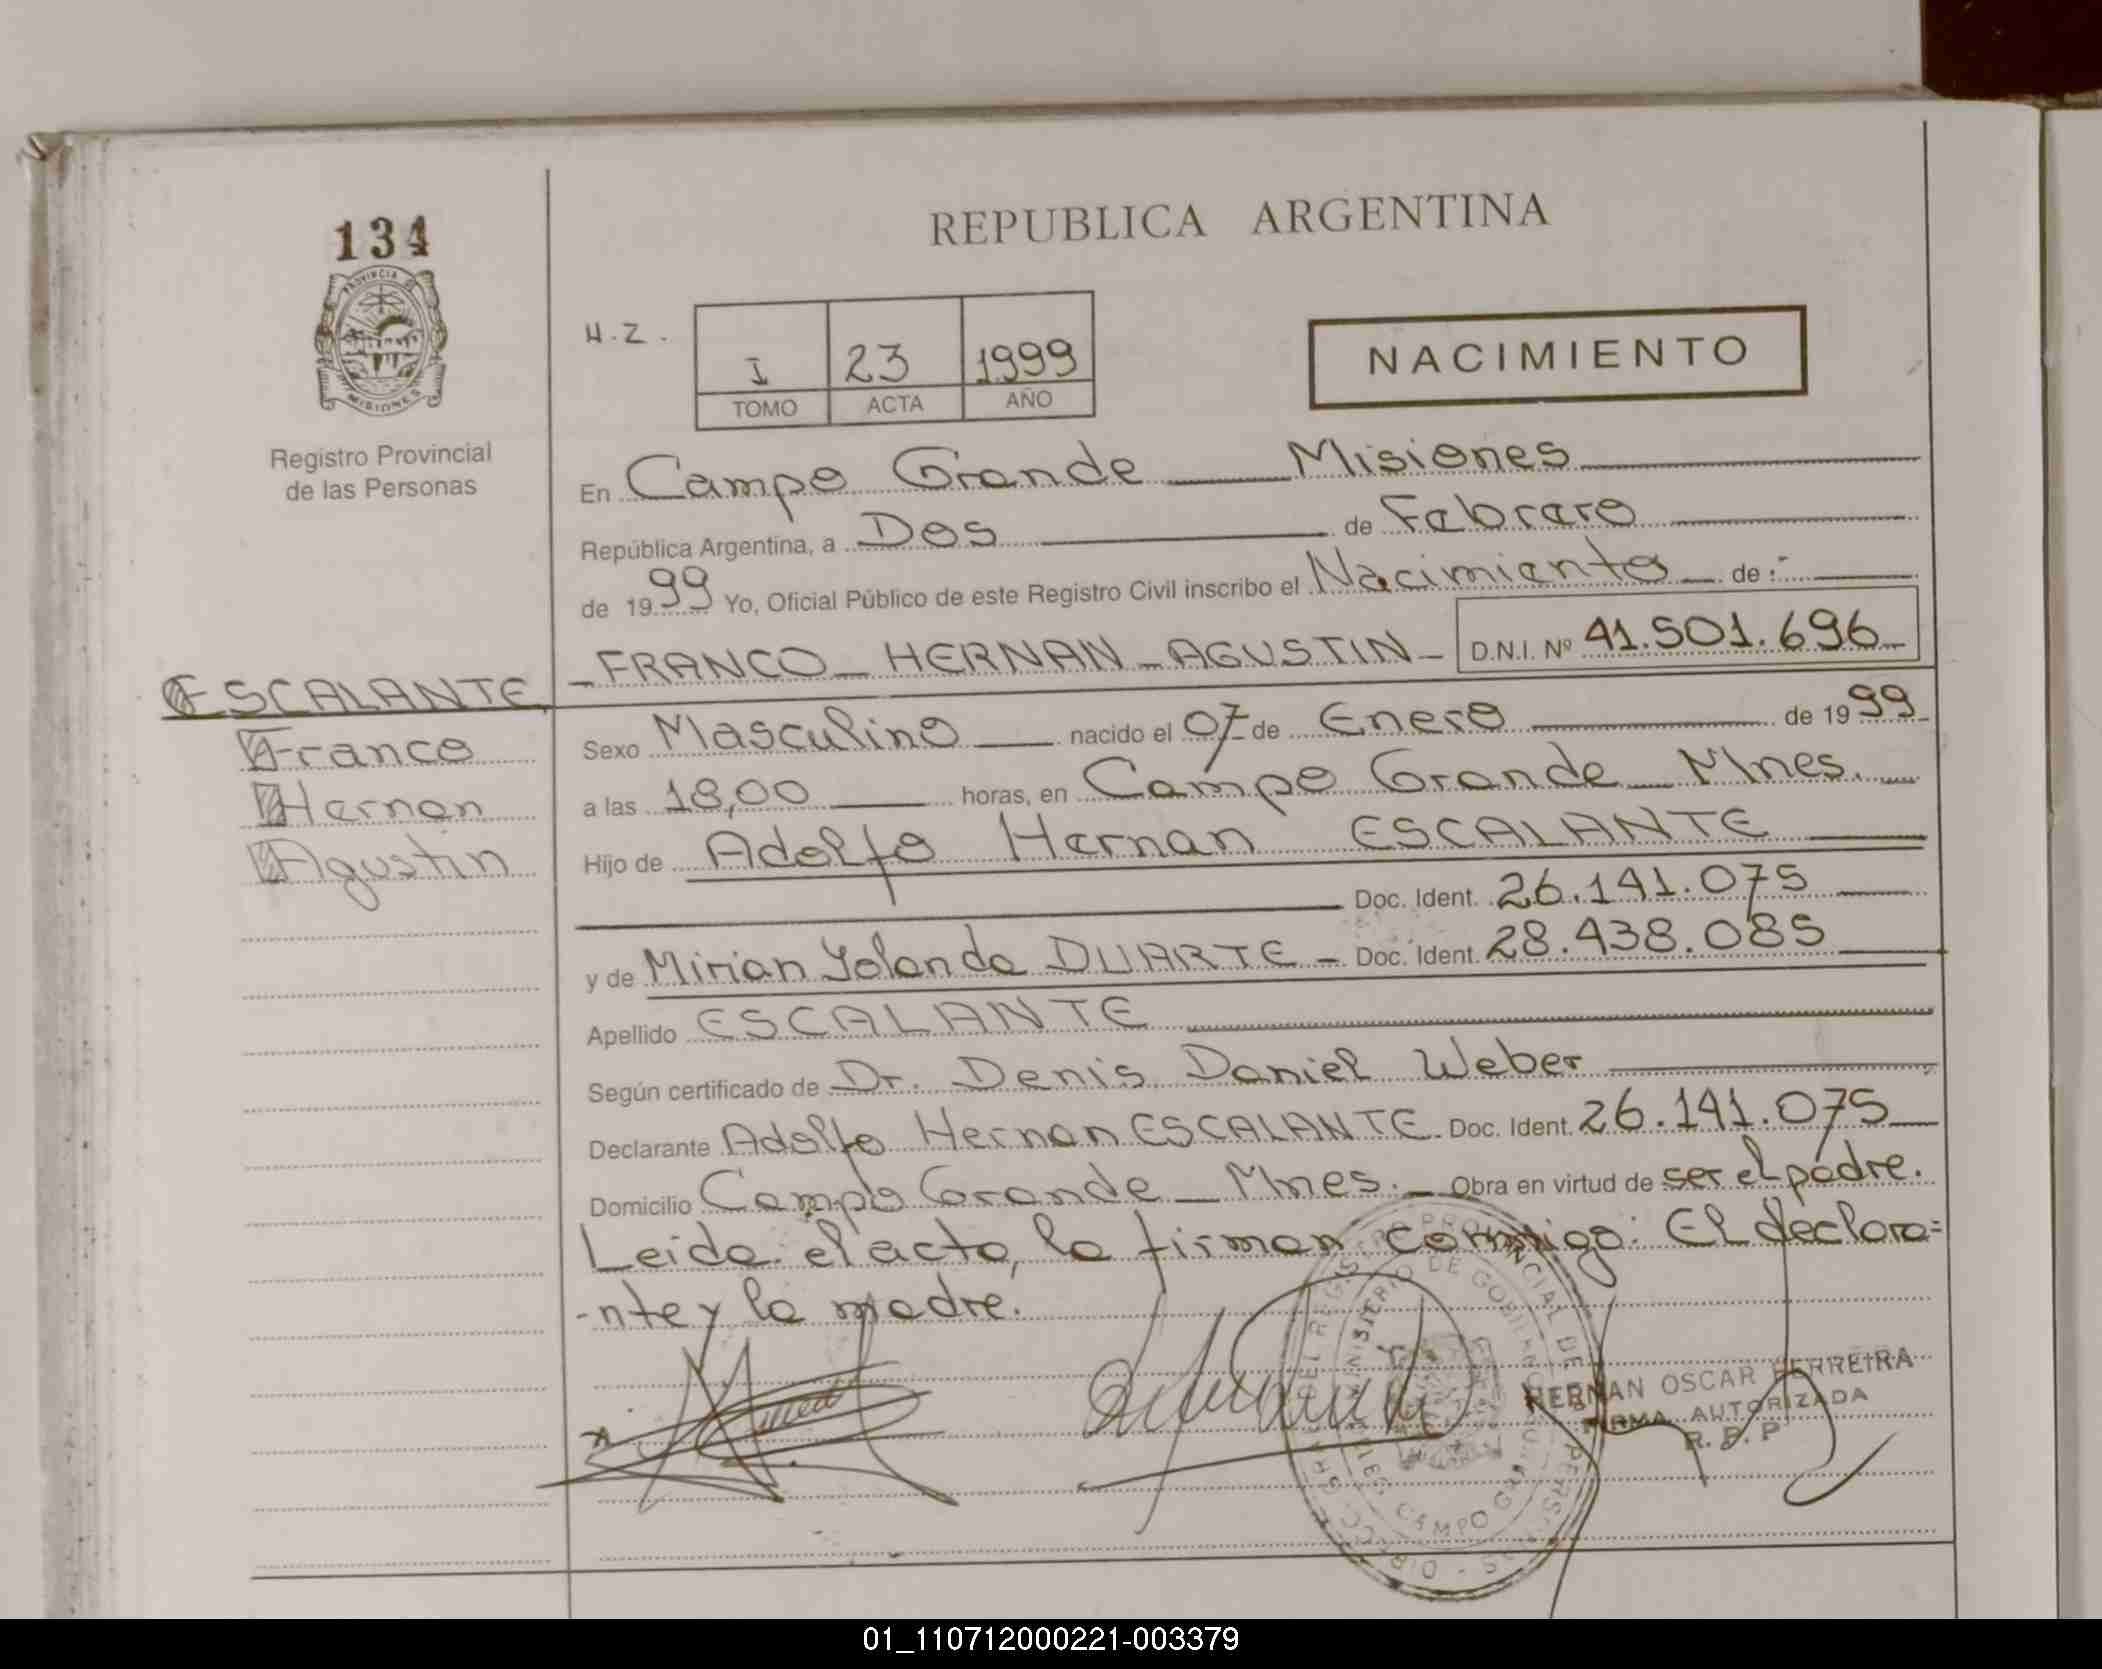 134
REPUBLICA ARGENTINA
PROVINCIA
MISIONES
Registro Provincial
de las Personas
H.Z.
I 23 1999
TOMO ACTA AÑO
NACIMIENTO
En Campo Grande Misiones
República Argentina, a Dos de Febrero
de 1999 Yo, Oficial Público de este Registro Civil inscribo el Nacimiento de:
FRANCO HERNAN AGUSTIN D.N.I. Nº 41.501.696
ESCALANTE
Franco
Hernan
Agustin
Sexo Masculino nacido el 07 de Enero de 1999
a las 18,00 horas, en Campo Grande Mnes.
Hijo de Adolfo Hernan ESCALANTE
Doc. Ident. 26.141.075
y de Mirian Yolanda DUARTE Doc. Ident. 28.438.085
Apellido ESCALANTE
Según certificado de Dr. Denis Daniel Weber
Declarante Adolfo Hernan ESCALANTE Doc. Ident. 26.141.075
Domicilio Campo Grande Mnes. Obra en virtud de ser el padre.
Leida el acta, la firman conmigo: El declara=
-nte y la madre.
HERNAN OSCAR HERREIRA
FIRMA AUTORIZADA
R. P. P
01_110712000221-003379